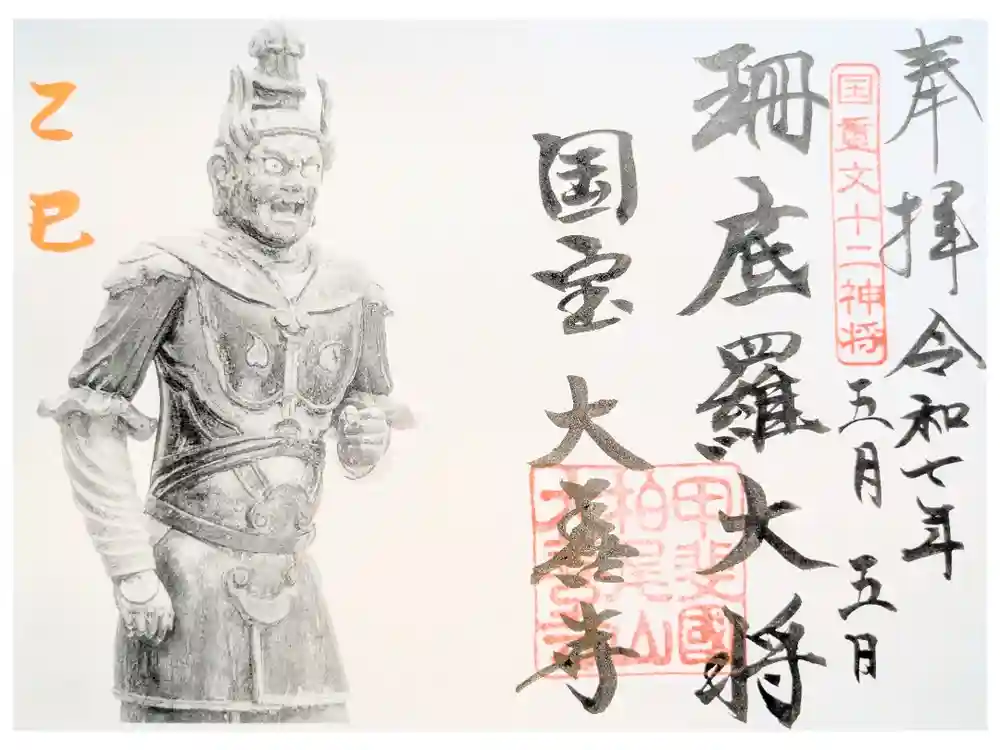 奉拝 令和七年
五月五日
国重文十二神将
珊底羅大将
国宝 大善寺
甲斐國
柏尾山
大善寺
乙巳